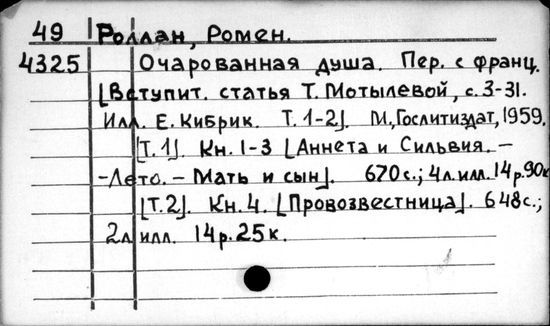 49 Роллан, Ромен.
4325 Очарованная душа. Пер. с франц.
[Вступит. статья Т. Мотылевой, с. 3-31.
Илл. Е. Кибрик. Т. 1-2]. М., Гослитиздат, 1959.
[Т. 1]. Кн. 1-3 [Аннета и Сильвия. -
-Лето. - Мать и сын]. 670 с.; 4 л. илл. 14 р. 90 к
[Т. 2]. Кн. 4. [Провозвестница]. 648 с.;
2 л илл. 14 р. 25 к.